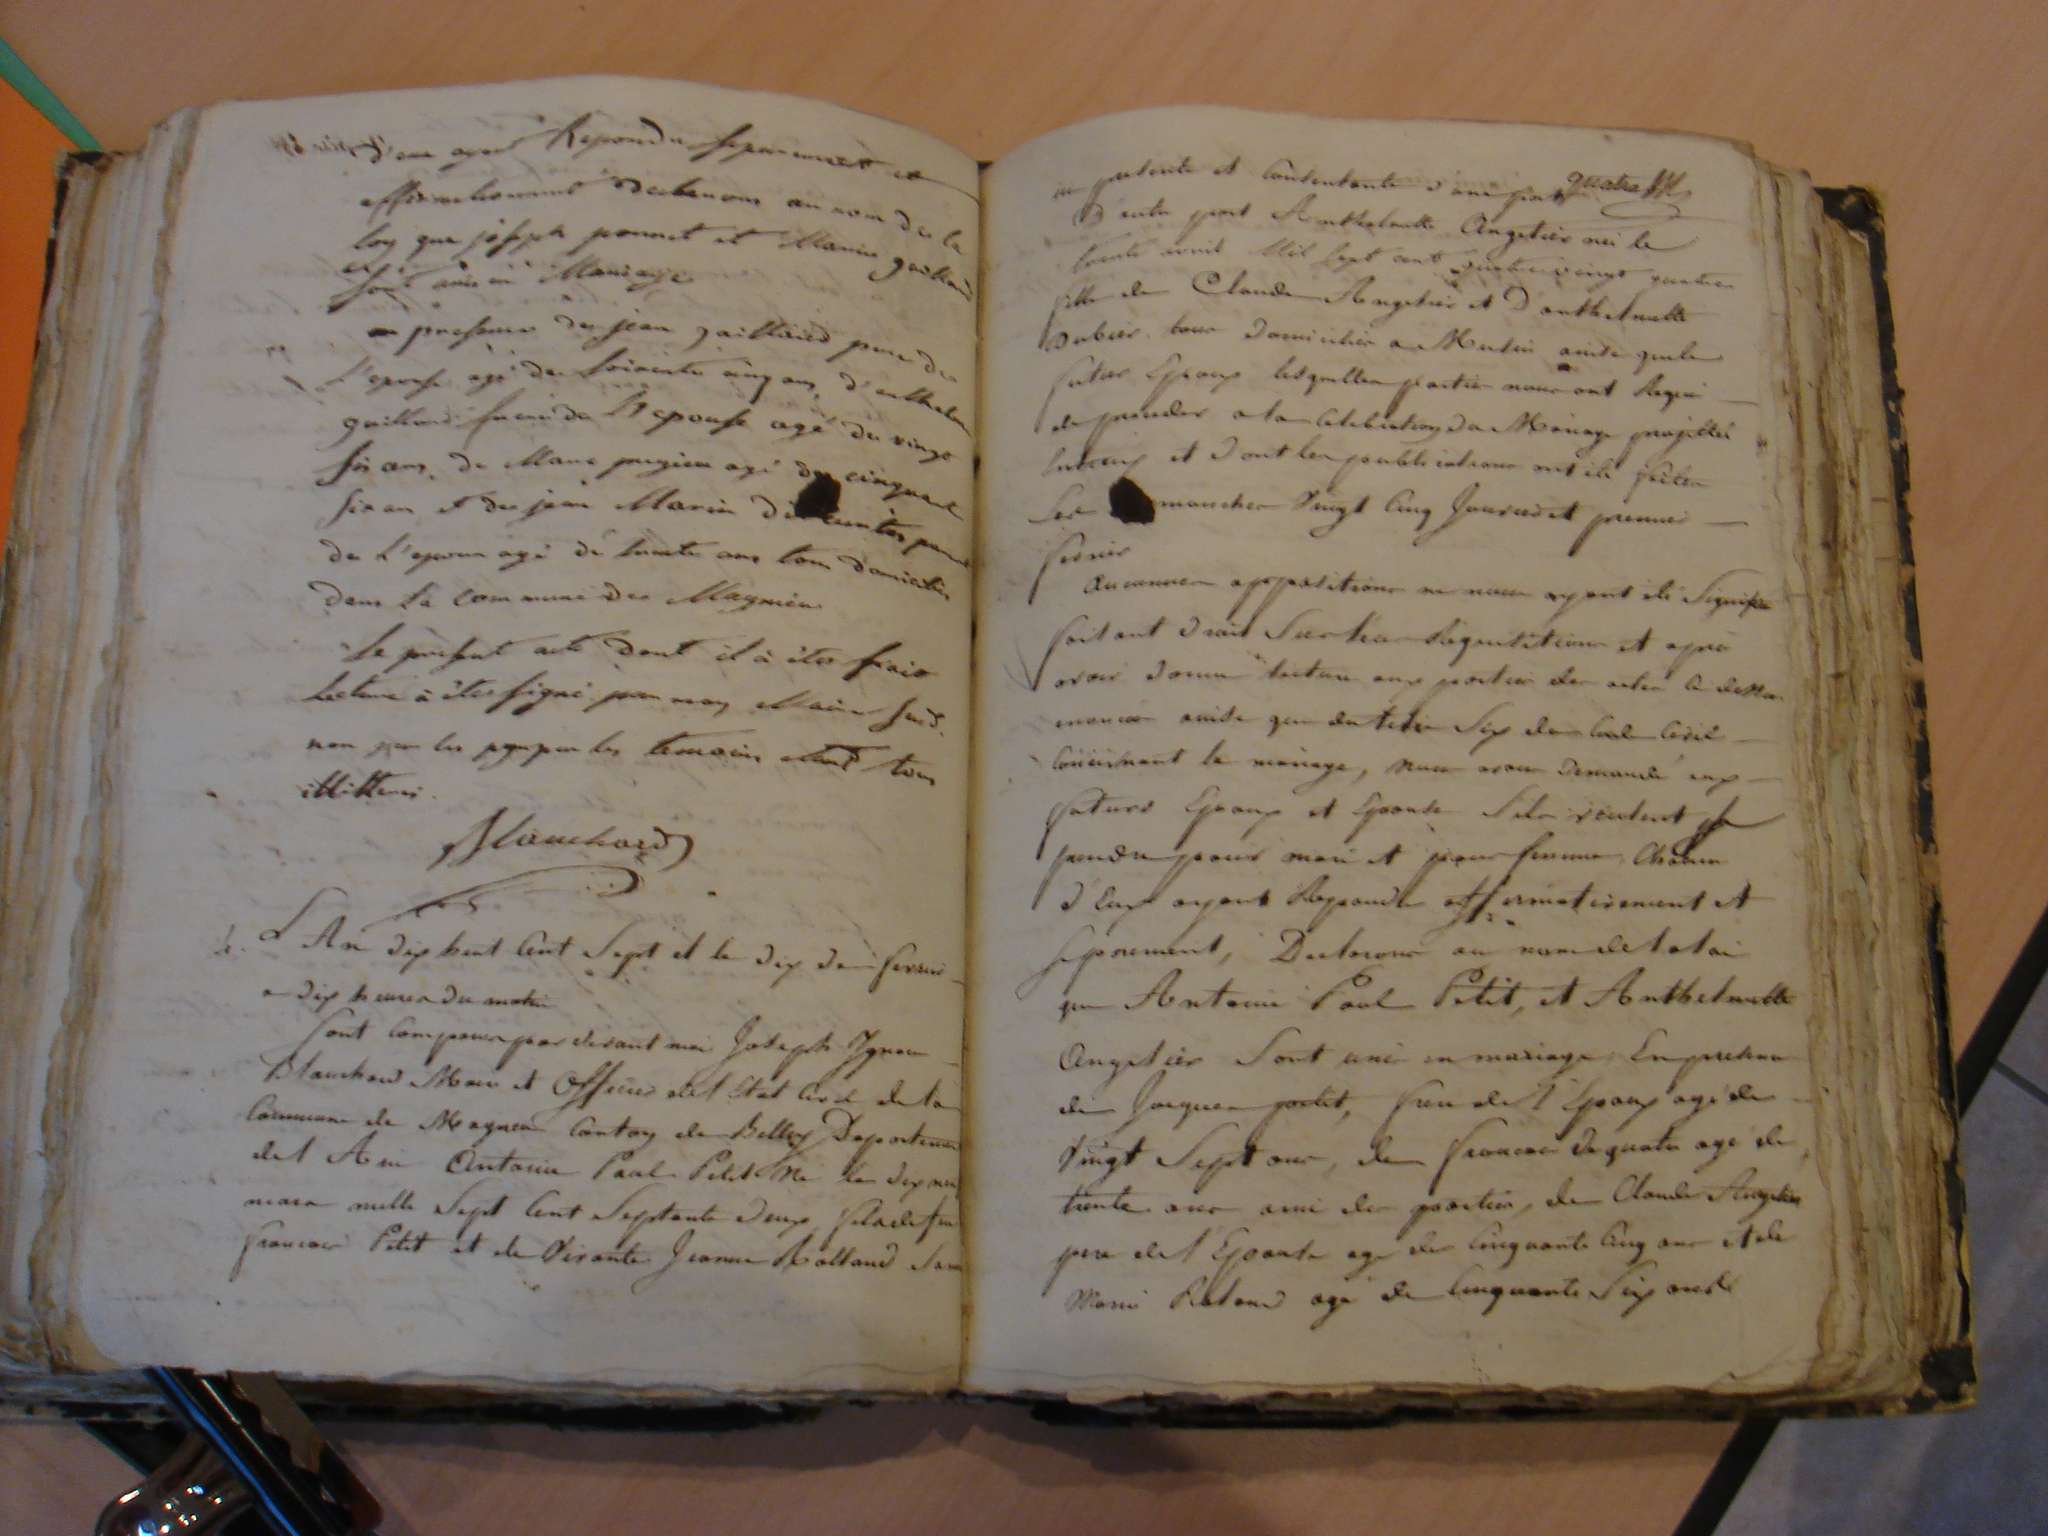 d'eux ayant Repondu separement et
affirmativement declarons au nom de la
loy que joseph ponnet et Marie gaillard
sont unis en Mariage
en presence de jean gaillard pere de
L'epouse agé de soixente cinq ans, d'anthelme
gaillard frere de L'epouse agé de vingt
six ans, de Marc agé de cinquante
six ans et de jean Marie
de L'epoux agé de trente ans tous domiciliés
dans la commune de Magnieu
le present acte dont il à étés frais
Lecture à étés signé par moy Maire susd.
non par les par les temoins etant tous
illitterés.
Blanchard
4. L'An dix huit Cent Sept et le dix de fevrier
a dix heures du matin
Sont comparus par devant moi Joseph Ignace
Blanchard Maire et Officier de l'Etat Civil de la
Commune de Magnieu Canton de Belley Departement
de l'Ain Antoine Paul Petit Né le dix neuf
mars mille Sept Cent Septante deux fils de feu
francois Petit et de vivante Jeanne Rolland sa
quatre
ici presente et Consentante d'une part
D'autre part Anthelmette Angelier née le
trente avril Mil Sept cent quatre vingt quatre
fille de Claude Angelier et D'anthelmette
Dubier tous domiciliés a Mussin ainsi que le
futur Epoux lesquelles parties nous ont Requis
de proceder a la Celebration du Mariage projetté
entr'eux et dont les publications ont été faites
les Dimanches Vingt Cinq Janvier et premier
fevrier
Aucunes oppositions ne nous ayant été Signifiées
faisant droit Sur leur Requisition et après
avoir donné lecture aux parties des actes ci dessus
enoncés ainsi que du titre Six du Code Civil
Concernant le mariage, nous avons demandé aux
futurs Epoux et Epouse S'ils veulent se
prendre pour mari et pour femme, Chacun
d'Eux ayant Repondu affirmativement et
Separement, Declarons au nom de la loi
que Antoine Paul Petit, et Anthelmette
Angelier Sont unis en mariage En presence
de Jacques petit, frere de l'Epoux agé de
Vingt Sept ans, de francois Dequate agé de
trente ans ami des parties, de Claude Angelier
pere de l'Epouse agé de Cinquante Cinq ans et de
Marie Roland agé de Cinquante Six ans